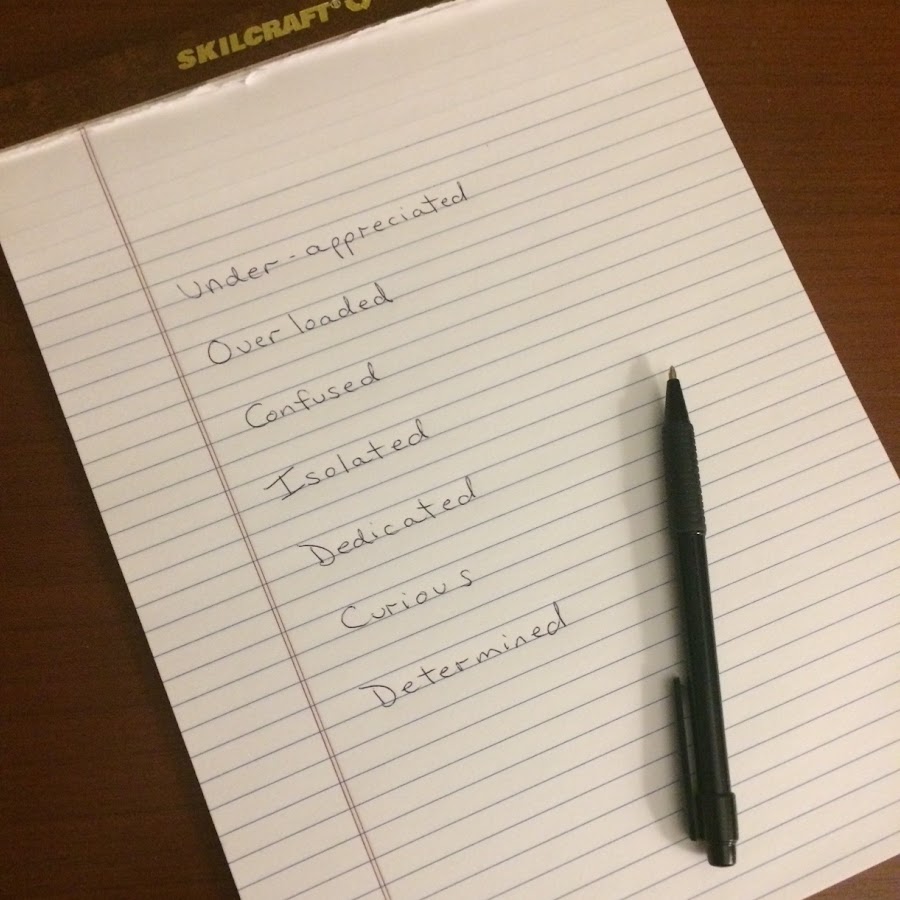 SKILCRAFT®
Under-appreciated
Overloaded
Confused
Isolated
Dedicated
Curious
Determined